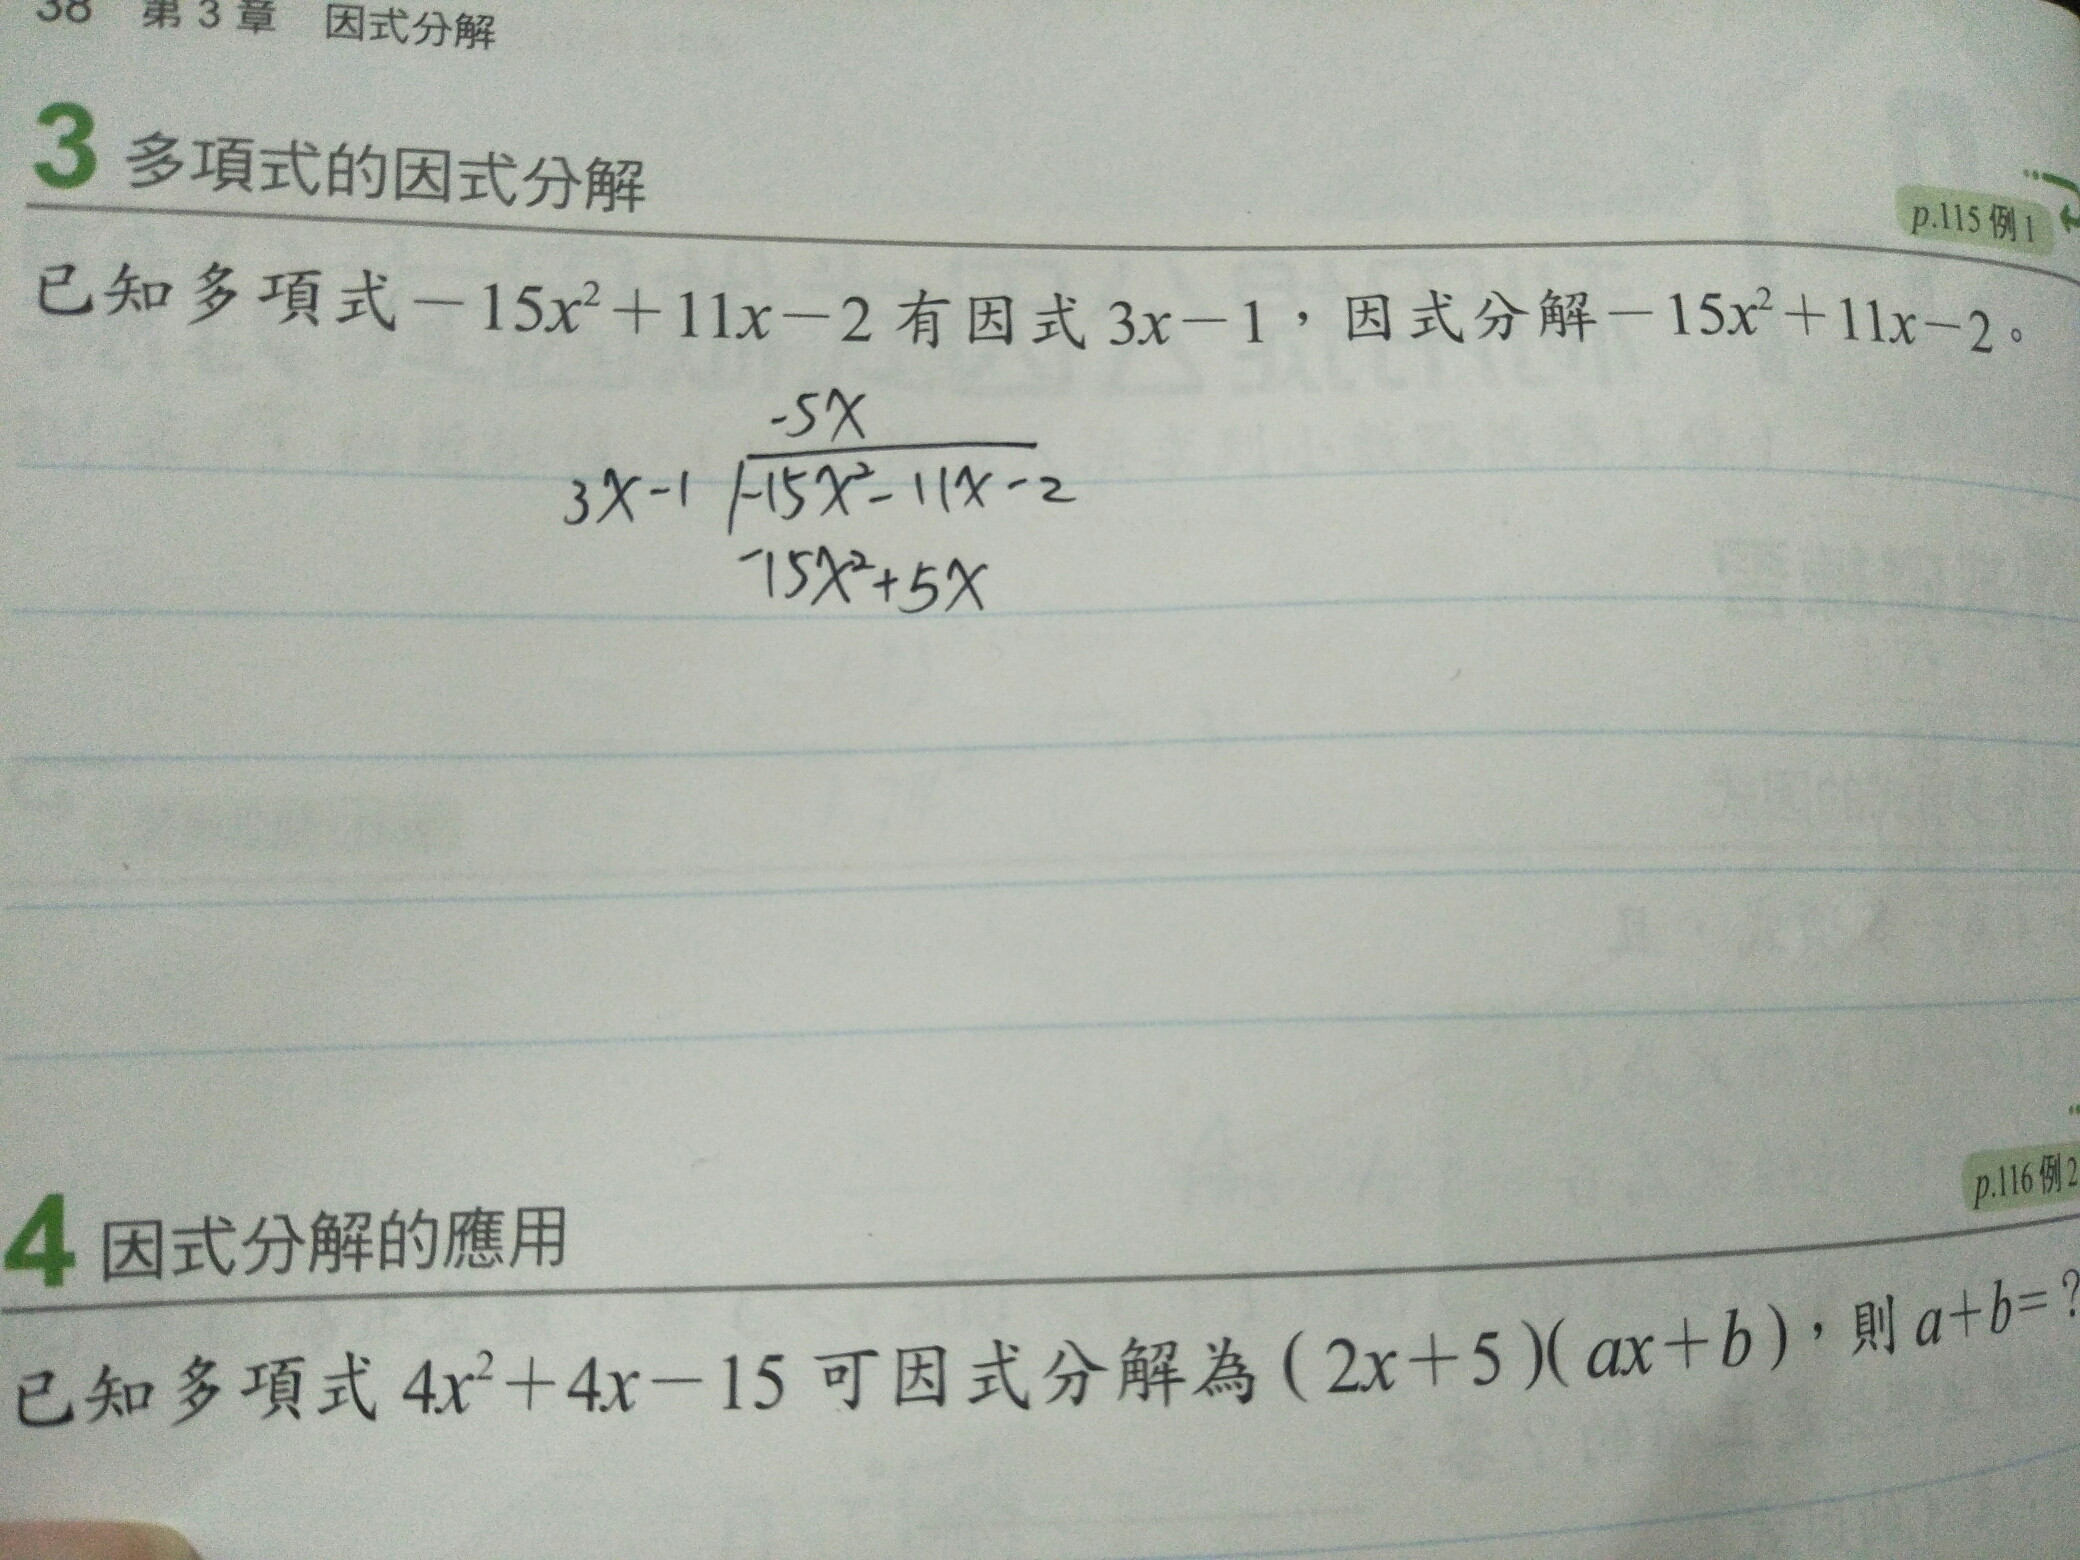 38 第3章 因式分解
3 多項式的因式分解
p.115例1
已知多項式－15x²＋11x－2有因式3x－1，因式分解－15x²＋11x－2。
-5x
3x-1 -15x²-11x-2
-15x²+5x
p.116例2
4 因式分解的應用
已知多項式4x²＋4x－15可因式分解為(2x＋5)(ax＋b)，則a＋b＝?